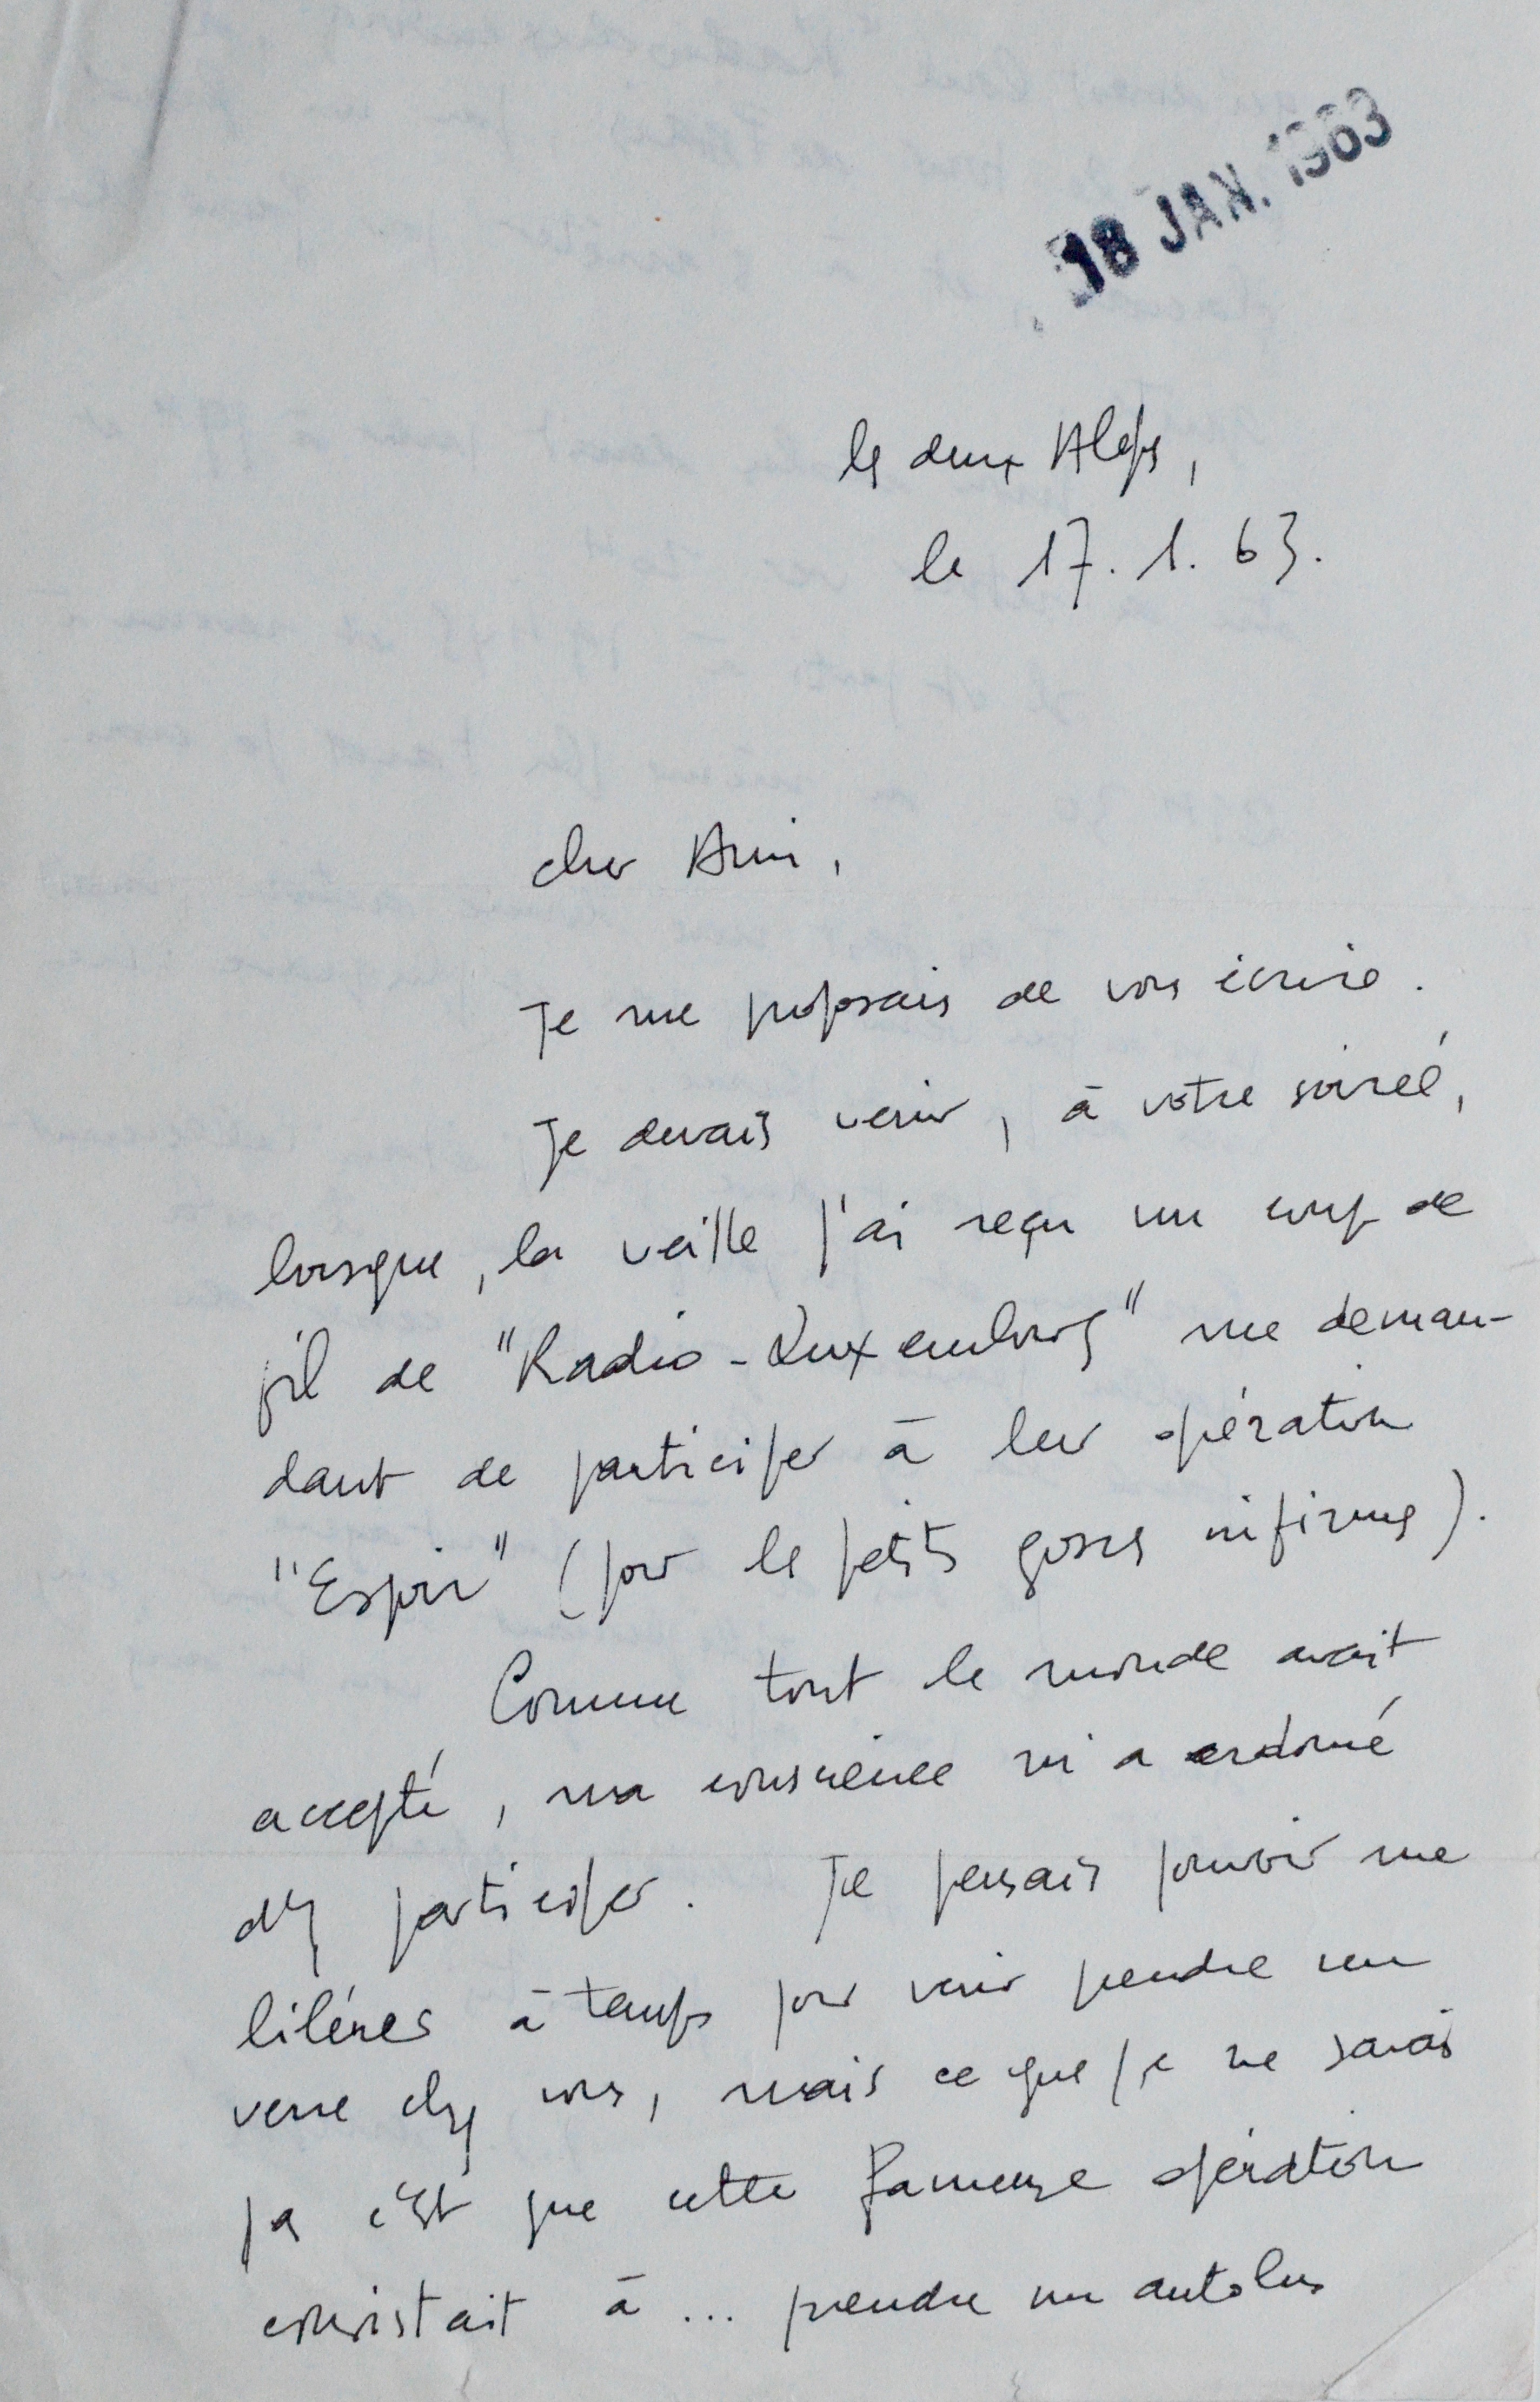 18 JAN. 1963
les deux Alpes,
le 17. 1. 63.
cher Ami,
Je me proposais de vous écrire.
Je devais venir, à votre soirée,
lorsque, la veille j'ai reçu un coup de
fil de "Radio-Luxembourg" me deman-
dant de participer à leur opération
"Espoir" (pour les petits gosses infirmes).
Comme tout le monde avait
accepté, ma conscience m'a ordonné
d'y participer. Je pensais pouvoir me
libérer à temps pour venir prendre un
verre chez vous, mais ce que je ne savais
pas c'est que cette fameuse opération
consistait à ... prendre un autobus